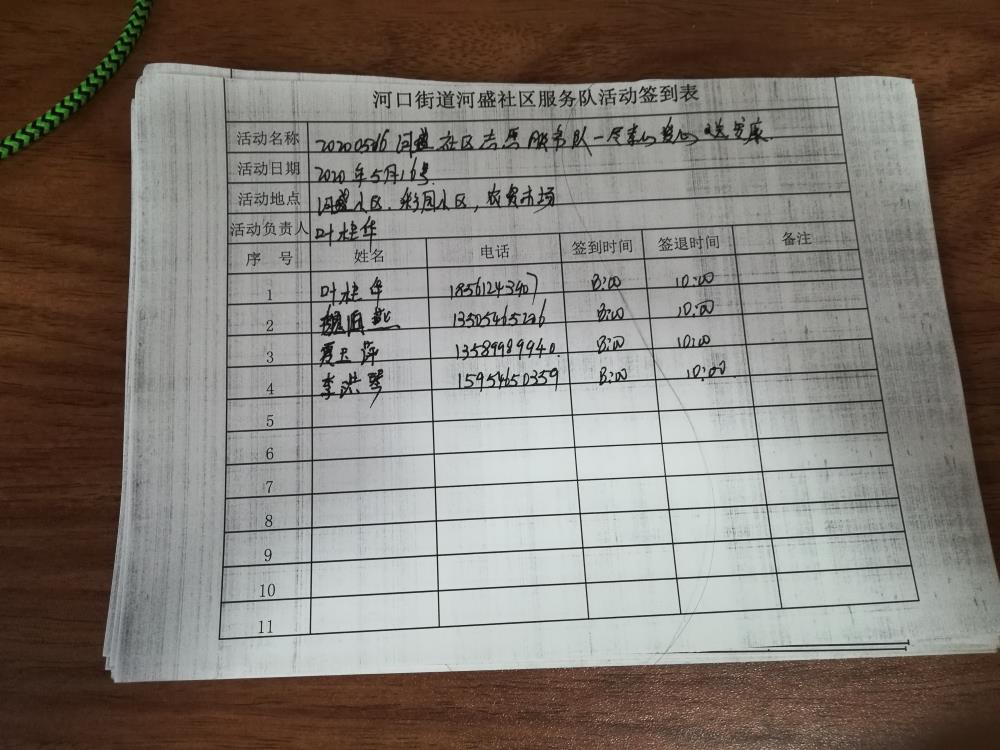 河口街道河盛社区服务队活动签到表
活动名称 20200516河盛社区志愿服务队一
活动日期 2020年5月16号
活动地点 河盛小区、彩园小区,农贸市场
活动负责人 叶桂华
序 号 姓名 电话 签到时间 签退时间 备注
1 叶桂华 18561243407 8:00 10:00
2 8:00 10:00
3 夏玉萍 13589989940 8:00 10:00
4 李洪琴 15954650359 8:00 10:00
5
6
7
8
9
10
11